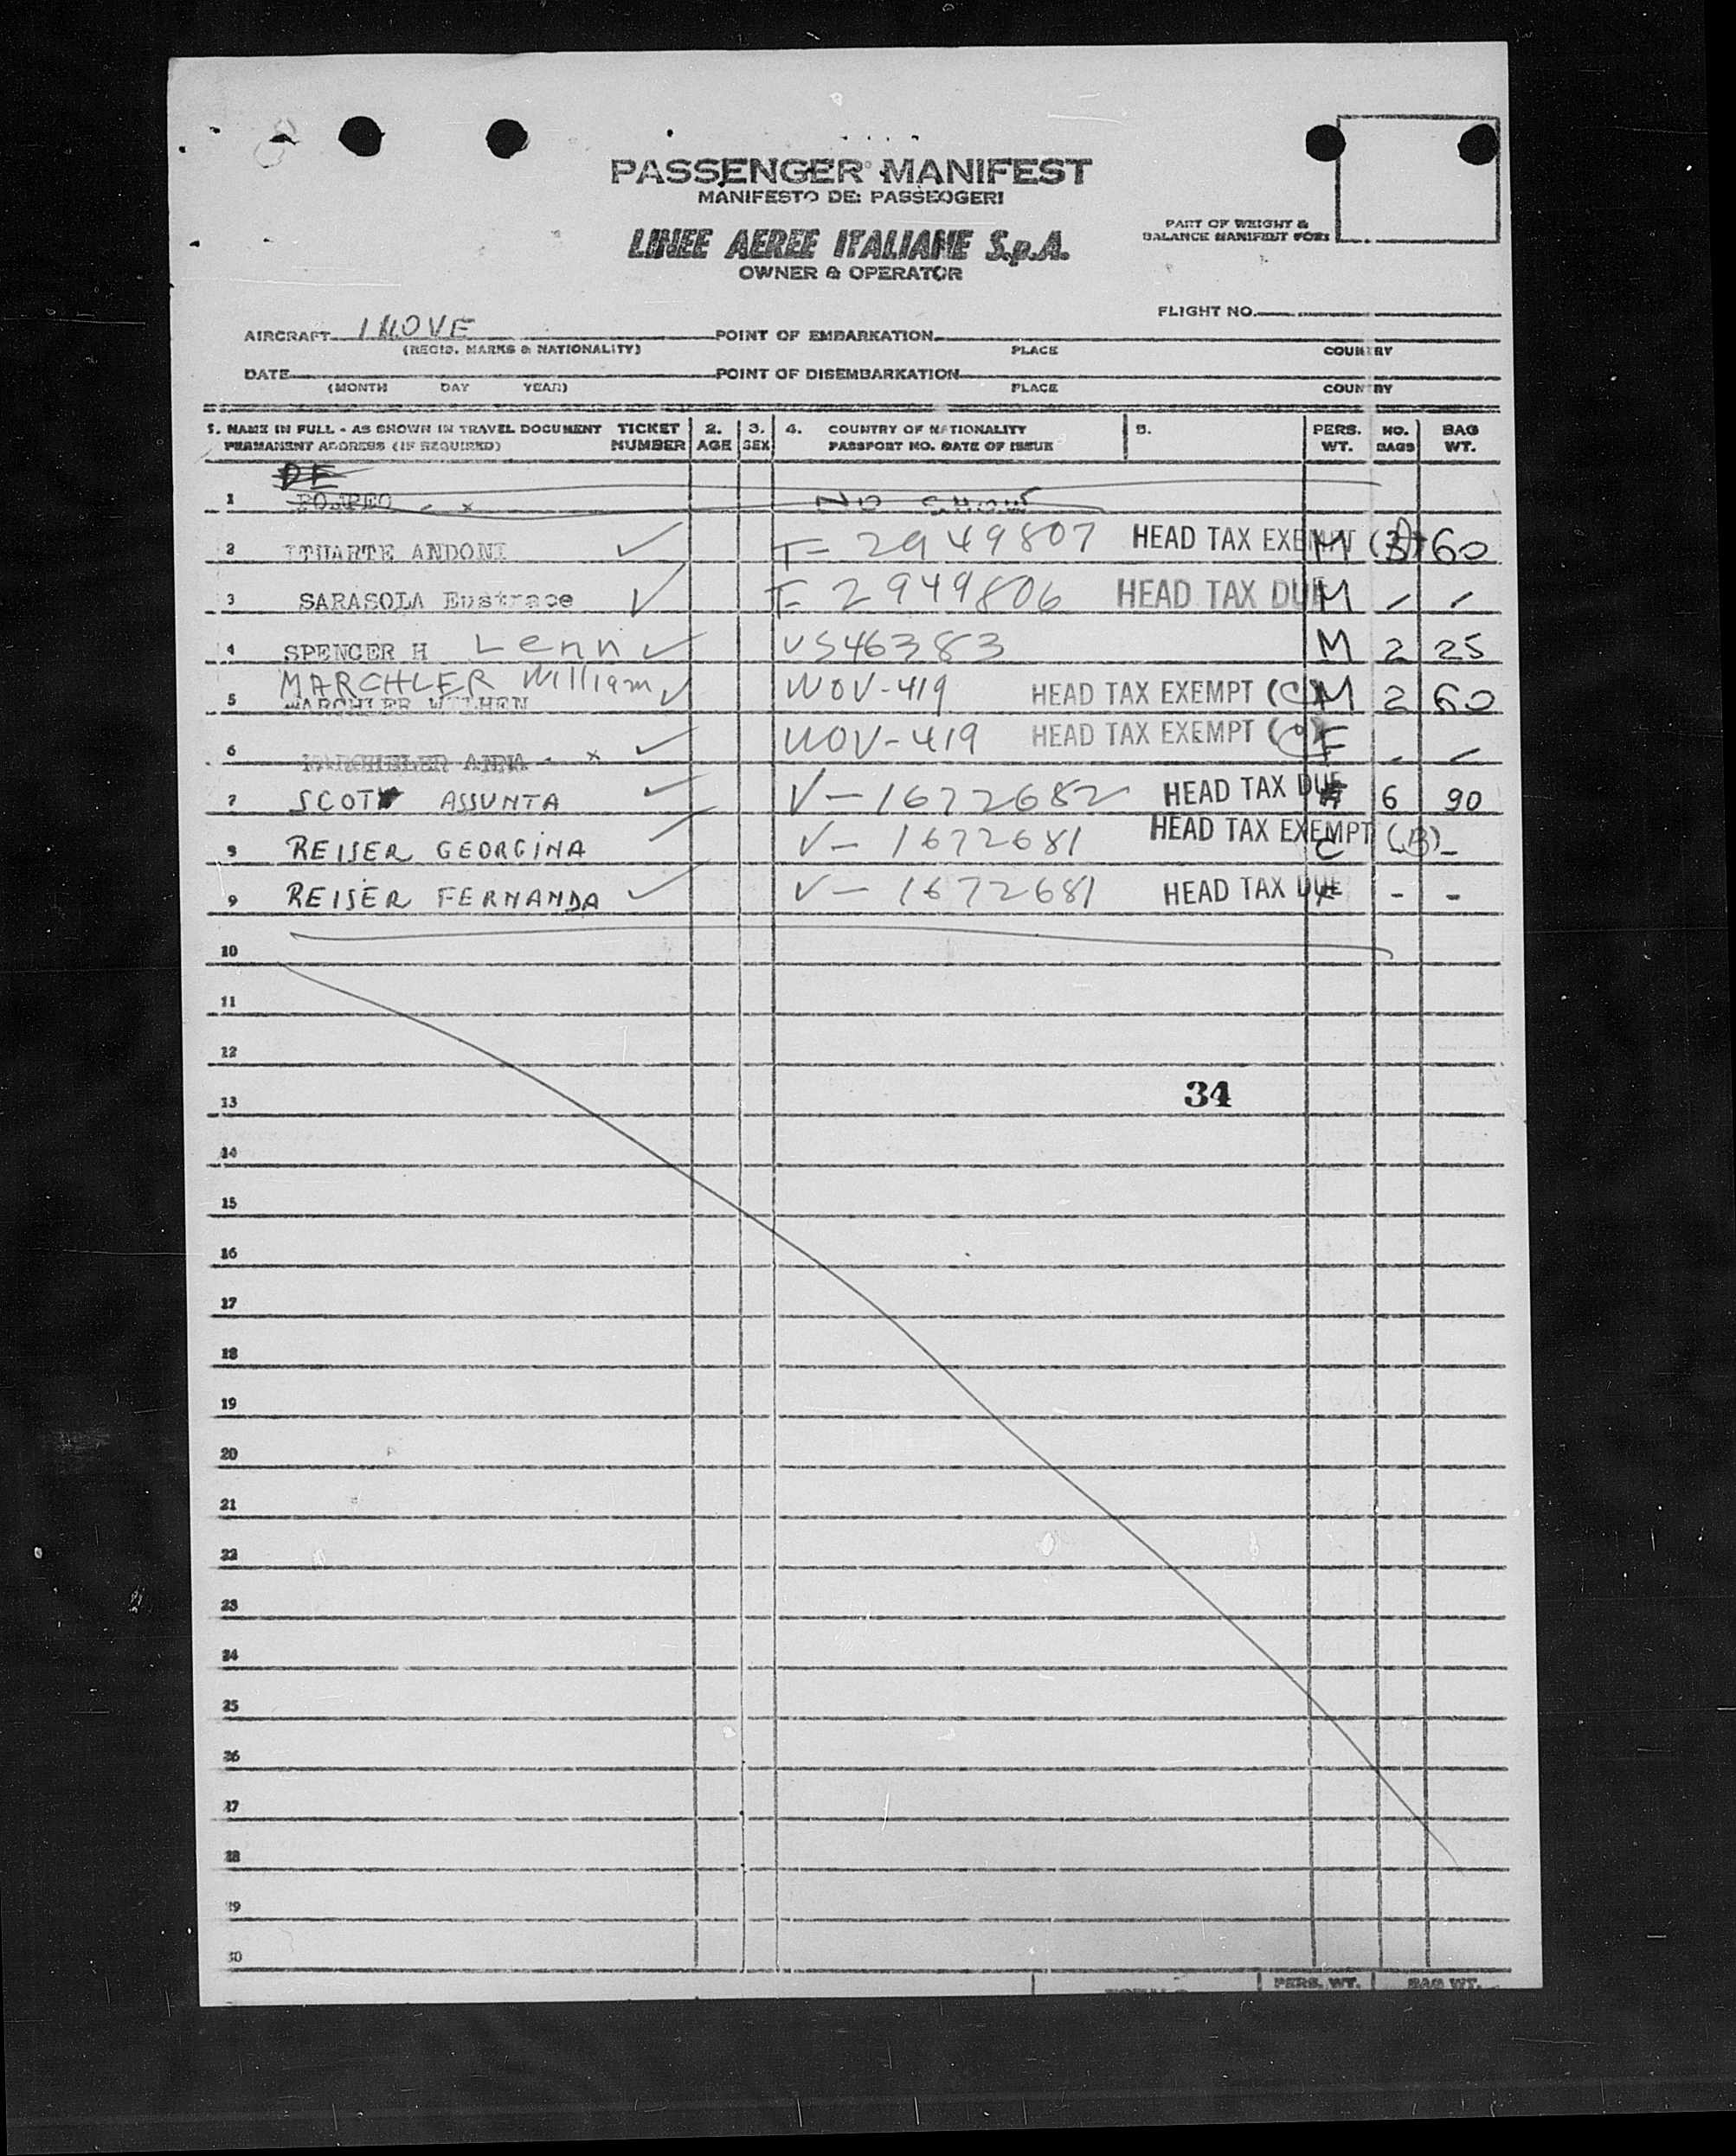 PASSENGER MANIFEST
MANIFESTO DEI PASSEGGERI
LINEE AEREE ITALIANE S.p.A.
OWNER & OPERATOR
PART OF WEIGHT &
BALANCE MANIFEST FORM
FLIGHT NO.
AIRCRAFT POINT OF EMBARKATION
(REGIS. MARKS & NATIONALITY) PLACE COUNTRY
DATE POINT OF DISEMBARKATION
(MONTH DAY YEAR) PLACE COUNTRY
1. NAME IN FULL - AS SHOWN IN TRAVEL DOCUMENT TICKET 2. 3. 4. COUNTRY OF NATIONALITY 5. PERS. NO. BAG
PERMANENT ADDRESS (IF REQUIRED) NUMBER AGE SEX PASSPORT NO. DATE OF ISSUE WT. BAGS WT.
DE
1 POMPEO - x NO SHOW
2 ITUARTE ANDONI ✓ T- 2949807 HEAD TAX EXEMPT M 60
3 SARASOLA Eustrace ✓ T- 2949806 HEAD TAX DUE M - -
4 SPENCER H Lenn ✓ US46383 M 2 25
MARCHLER William
5 MARCHLER WILHEN ✓ WOV-419 HEAD TAX EXEMPT (C) M 2 60
6 ANNA - x ✓ WOV-419 HEAD TAX EXEMPT (C) F - -
7 SCOTT ASSUNTA ✓ V-1672682 HEAD TAX DUE 6 90
8 REISER GEORGINA ✓ V-1672681 HEAD TAX EXEMPT (B) C -
9 REISER FERNANDA ✓ V-1672681 HEAD TAX DUE F - -
10
11
12
13 34
14
15
16
17
18
19
20
21
22
23
24
25
26
27
28
29
30
PERS. WT. BAG WT.